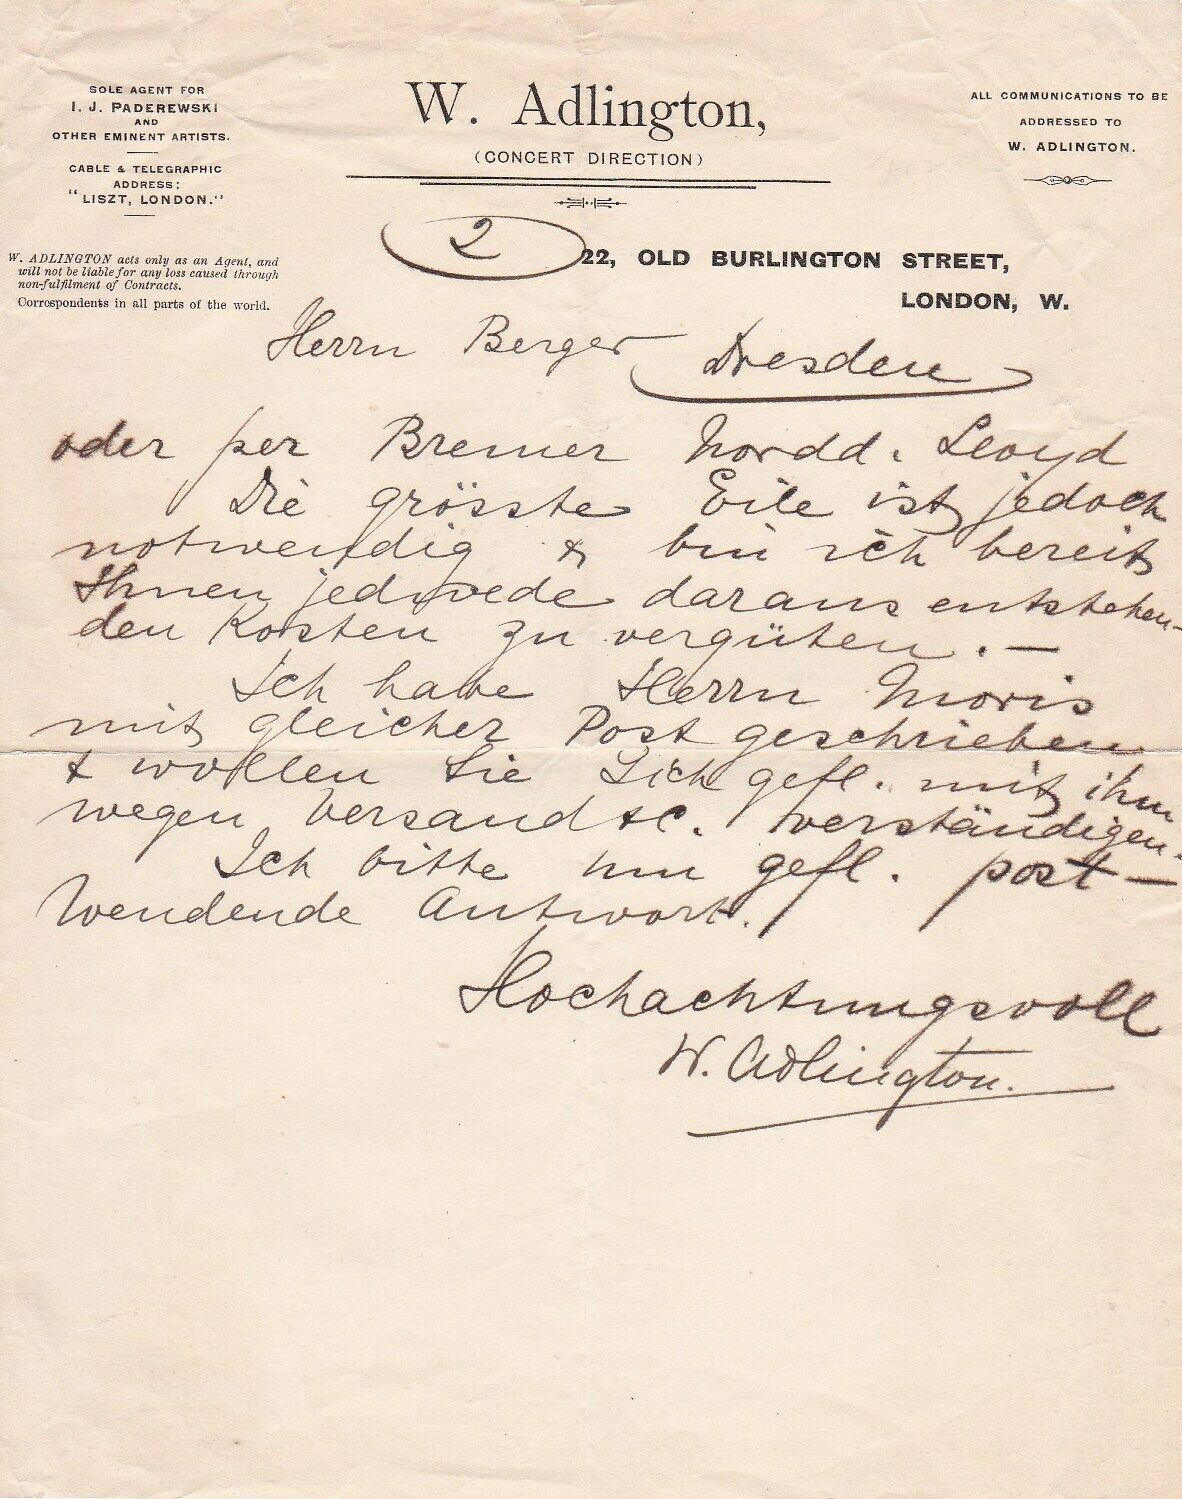 SOLE AGENT FOR
I. J. PADEREWSKI
AND
OTHER EMINENT ARTISTS.
CABLE & TELEGRAPHIC
ADDRESS:
"LISZT, LONDON."
W. ADLINGTON acts only as an Agent, and
will not be liable for any loss caused through
non-fulfilment of Contracts.
Correspondents in all parts of the world.
W. Adlington,
(CONCERT DIRECTION)
ALL COMMUNICATIONS TO BE
ADDRESSED TO
W. ADLINGTON.
2
22, OLD BURLINGTON STREET,
LONDON, W.
Herrn Berger Dresden
oder per Bremer Nordd. Lloyd
Die grösste Eile ist jedoch
notwendig & bin ich bereit
Ihnen jedwede daraus entstehen-
den Kosten zu vergüten. —
Ich habe Herrn Moris
mit gleicher Post geschrieben
& wollen Sie Sich gefl. mit ihm
wegen Versand &c. verständigen.
Ich bitte um gefl. post-
wendende Antwort.
Hochachtungsvoll
W. Adlington.